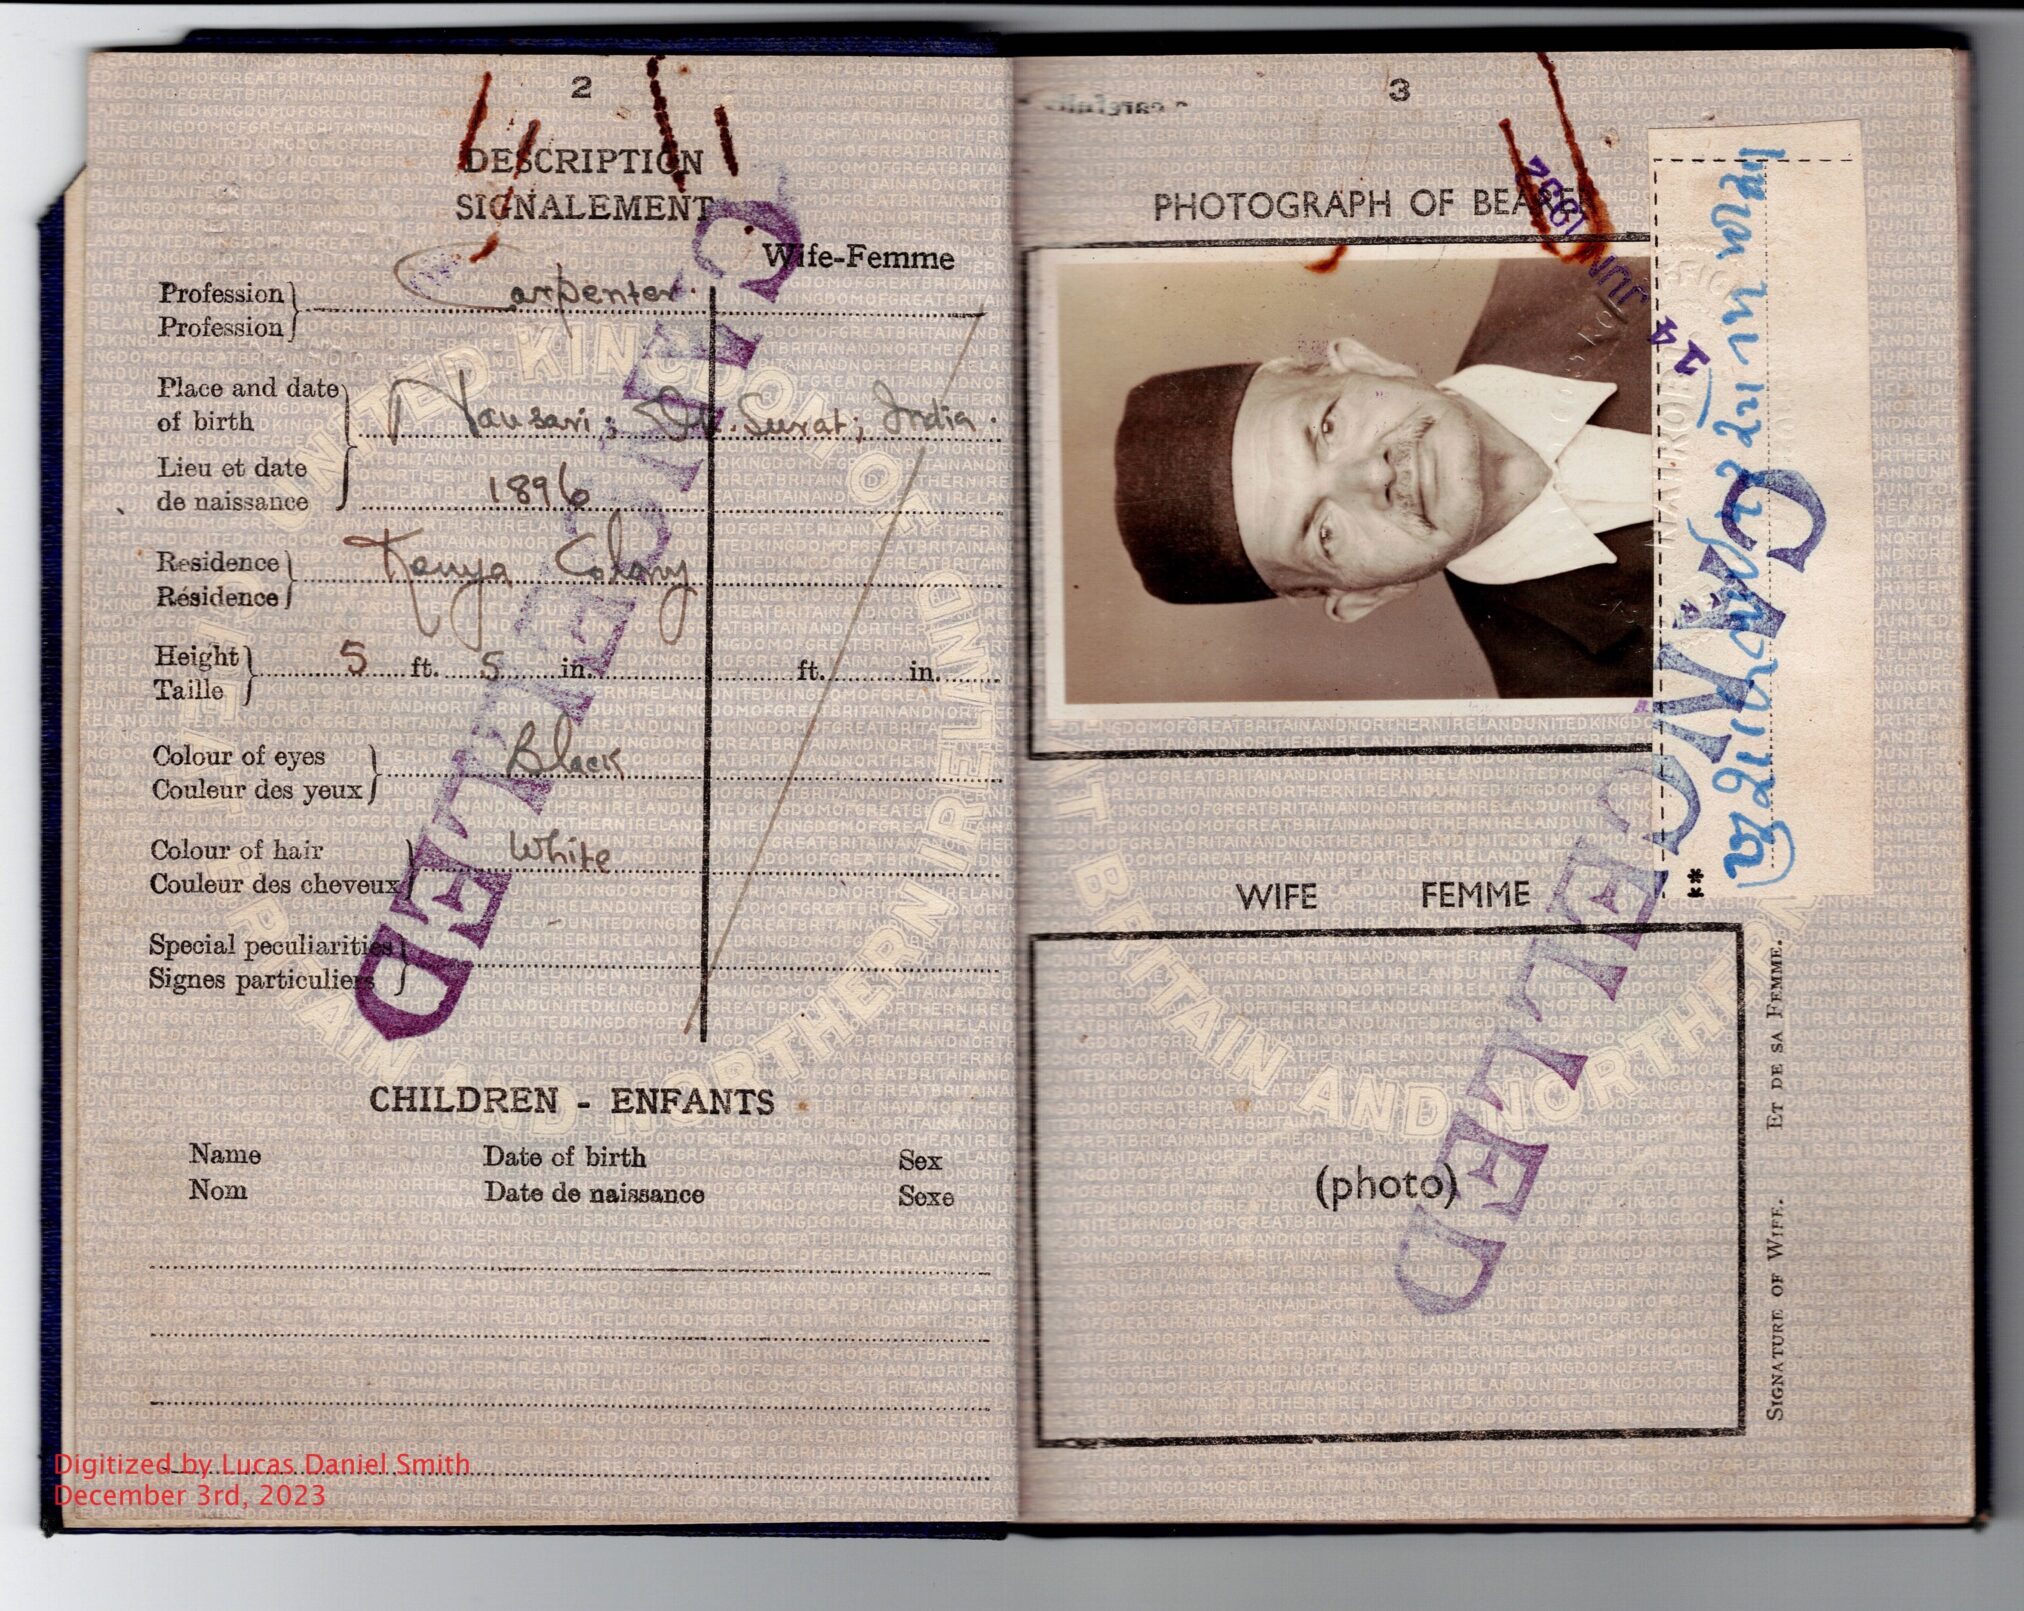 2
DESCRIPTION
SIGNALEMENT
Wife-Femme
Profession
Profession
Carpenter.
Place and date
of birth
Lieu et date
de naissance
Nausari; Dt. Surat; India.
1896
Residence
Résidence
Kenya Colony
Height
Taille
5 ft. 5 in.
ft. in.
Colour of eyes
Couleur des yeux
Black
Colour of hair
Couleur des cheveux
White
Special peculiarities
Signes particuliers
CHILDREN - ENFANTS
Name Date of birth Sex
Nom Date de naissance Sexe
CANCELLED
Digitized by Lucas Daniel Smith
December 3rd, 2023
3
PHOTOGRAPH OF BEARER
14 JUN 1952
WIFE FEMME
(photo)
CANCELLED
SIGNATURE OF WIFE. ET DE SA FEMME.
UNITED KINGDOM OF GREAT BRITAIN AND NORTHERN IRELAND